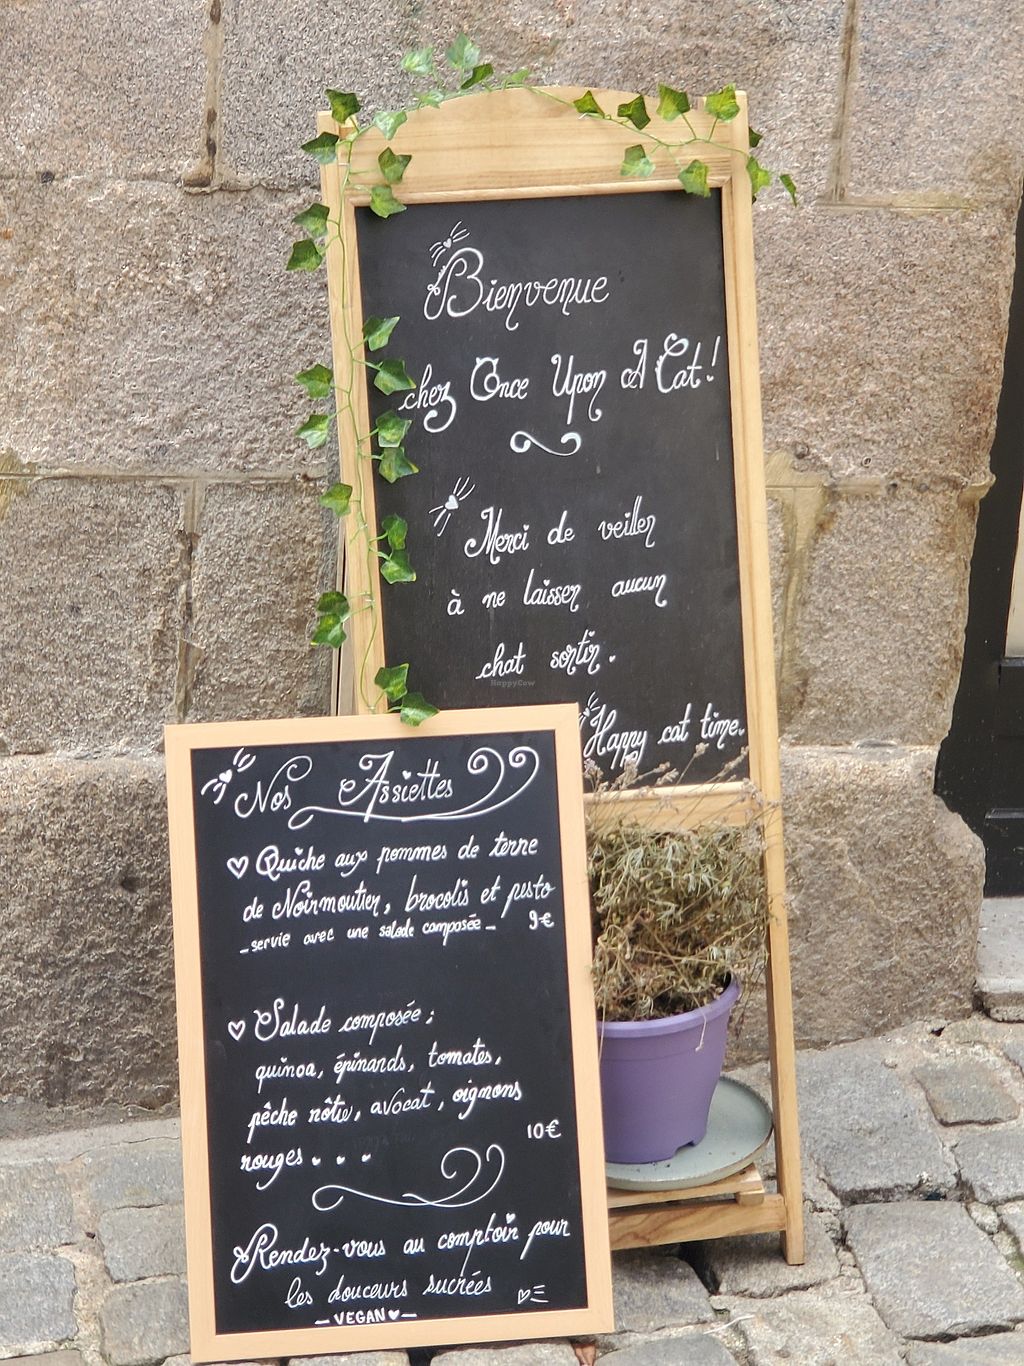 Bienvenue
chez Once Upon A Cat!
Merci de veiller
à ne laisser aucun
chat sortir.
Happy cat time.
HappyCow
Nos Assiettes
Quiche aux pommes de terre
de Noirmoutier, brocolis et pesto
-servie avec une salade composée- 9€
Salade composée:
quinoa, épinards, tomates,
pêche rôtie, avocat, oignons
rouges... 10€
Rendez-vous au comptoir pour
les douceurs sucrées
-VEGAN♥-